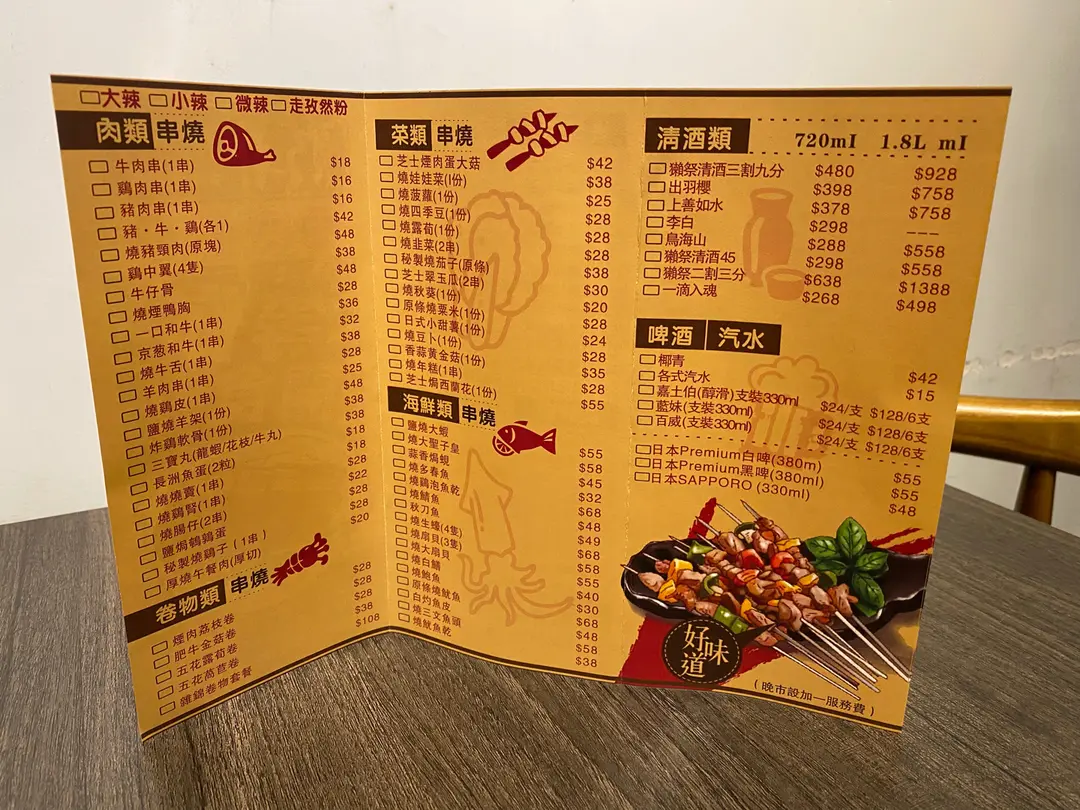 □大辣 □小辣 □微辣 □走孜然粉
肉類 串燒
□ 牛肉串(1串) $18
□ 鷄肉串(1串) $16
□ 豬肉串(1串) $16
□ 豬・牛・鷄(各1) $42
□ 燒豬頸肉(原塊) $48
□ 鷄中翼(4隻) $38
□ 牛仔骨 $48
□ 燒煙鴨胸 $28
□ 一口和牛(1串) $36
□ 京葱和牛(1串) $32
□ 燒牛舌(1串) $38
□ 羊肉串(1串) $28
□ 燒鷄皮(1串) $25
□ 鹽燒羊架(1份) $48
□ 炸鷄軟骨(1份) $38
□ 三寶丸(龍蝦/花枝/牛丸) $38
□ 長洲魚蛋(2粒) $18
□ 燒燒賣(1串) $18
□ 燒鷄腎(1串) $28
□ 燒腸仔(2串) $22
□ 鹽焗鵪鶉蛋 $28
□ 秘製燒鷄子(1串) $28
□ 厚燒午餐肉(厚切) $20
卷物類 串燒
□ 煙肉荔枝卷 $28
□ 肥牛金菇卷 $28
□ 五花露荀卷 $28
□ 五花萵苣卷 $38
□ 雜錦卷物套餐 $108
菜類 串燒
□ 芝士煙肉蛋大菇 $42
□ 燒娃娃菜(I份) $38
□ 燒菠蘿(1份) $25
□ 燒四季豆(1份) $28
□ 燒露荀(1份) $28
□ 燒韭菜(2串) $28
□ 秘製燒茄子(原條) $38
□ 芝士翠玉瓜(2串) $30
□ 燒秋葵(1份) $20
□ 原條燒粟米(1份) $28
□ 日式小甜薯(1份) $24
□ 燒豆卜(1份) $28
□ 香蒜黃金菇(1份) $35
□ 燒年糕(1串) $28
□ 芝士焗西蘭花(1份) $55
海鮮類 串燒
□ 鹽燒大蝦 $55
□ 燒大聖子皇 $58
□ 蒜香焗蜆 $45
□ 燒多春魚 $32
□ 燒鷄泡魚乾 $68
□ 燒鯖魚 $48
□ 秋刀魚 $49
□ 燒生蠔(4隻) $68
□ 燒扇貝(3隻) $58
□ 燒大扇貝 $55
□ 燒白鱔 $40
□ 燒鮑魚 $30
□ 原條燒魷魚 $68
□ 白灼魚皮 $48
□ 燒三文魚頭 $58
□ 燒魷魚乾 $38
清酒類 720mI 1.8L mI
□ 獺祭清酒三割九分 $480 $928
□ 出羽櫻 $398 $758
□ 上善如水 $378 $758
□ 李白 $298 ---
□ 鳥海山 $288 $558
□ 獺祭清酒45 $298 $558
□ 獺祭二割三分 $638 $1388
□ 一滴入魂 $268 $498
啤酒 汽水
□ 椰青 $42
□ 各式汽水 $15
□ 嘉士伯(醇滑)支裝330ml $24/支 $128/6支
□ 藍妹(支裝330ml) $24/支 $128/6支
□ 百威(支裝330ml) $24/支 $128/6支
□日本Premium白啤(380m) $55
□日本Premium黑啤(380ml) $55
□日本SAPPORO (330ml) $48
好味道
(晚市設加一服務費)